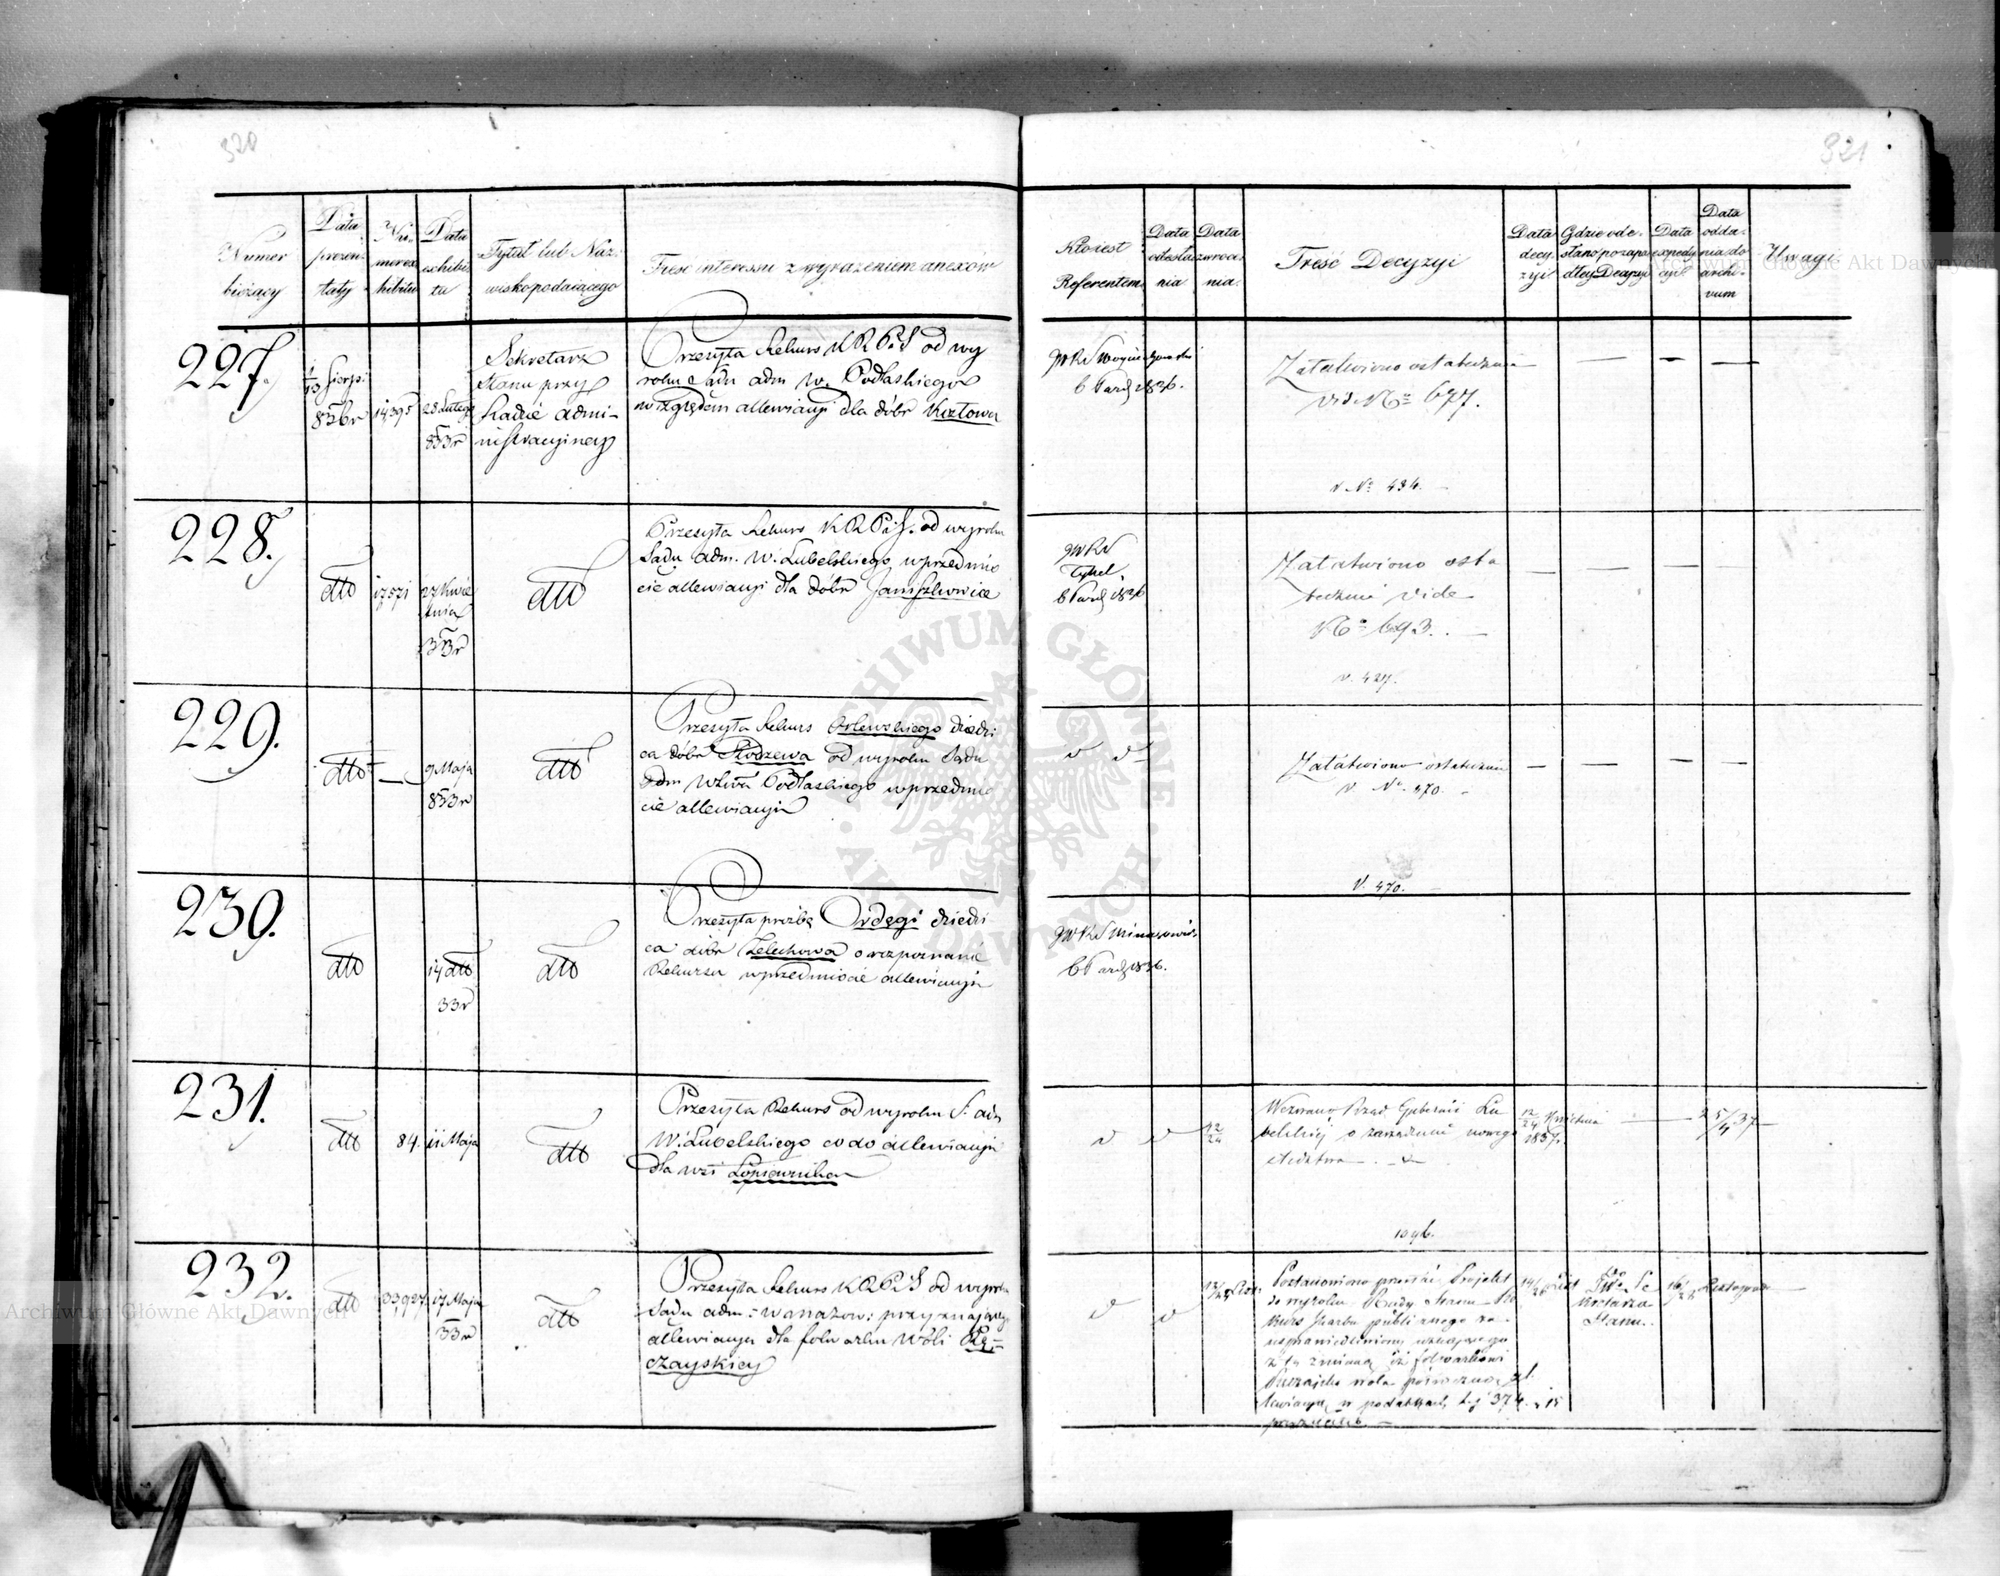 320
Numer bieżący
Data prezentaty
Numer exhibitu
Data exhibitu
Tytuł lub Nazwisko podającego
Treść interessu z wyrażeniem anexów
227.
1/13 Sierp:
836r
14,395
25 Lutego
833r
Sekretarz
Stanu przy
Radzie admi-
nistracyjney
Przesyła Rekurs KRPiS od wy
roku Sądu adm W. Podlaskiego
względem allewiacyi dla dóbr Kozłowa
228.
dtto
17,571
27 Kwie
tnia
833r
dtto
Przesyła Rekurs KRPiS. od wyroku
Sądu adm. W. Lubelskiego w przedmio
cie allewiacyi dla dóbr Janiszkowice
229.
dtto
9 Maja
833r
dtto
Przesyła Rekurs Orlewskiego dziedzi
ca dóbr od wyroku Sądu
adm Wztwa Podlaskiego w przedmio
cie allewiacyi
230.
dtto
14 dtto
33r
dtto
Przesyła prośbę Ordęgi dziedzi
ca dóbr Żelechowa o rozpoznanie
Rekursu w przedmiocie allewiacyi
231.
dtto
84.
11 Maja
dtto
Przesyła Rekurs od wyroku S. adm
W. Lubelskiego co do allewiacyi
dla wsi Łopiennika
232.
dtto
33927
17 Maja
33r
dtto
Przesyła Rekurs KRPiS od wyroku
Sądu adm: w mazow: przyznającego
allewiacyą dla folwarku Woli Pę-
czayskiey
321
Kto iest Referentem
Data odesłania
Data zwrócenia.
Treść Decyzyi
Data decyzyi
Gdzie odesłano po zapadłey Decyzyi
Data expedycyi
Data oddania do archivum
Uwagi
JWRS
6 Paźd 1836.
Załatwiono ostatecznie
vid No 677.
v. No 434.
JWRS
Tykel.
6 Paźd 1836
Załatwiono osta
tecznie vide
No 693.
v. 427.
Załatwiono ostatecznie
v. No. 470.
v. 470.
JWRS Minasowicz
6 Paźd 1836.
12/24
Wezwano Rząd Gubernii Lu
belskiej o zarządzenie nowego
śledztwa.
12/24 Kwietnia
1837.
25/4 37
1096.
Postanowiono przesłać Projekt
do wyroku Rady Stanu Re
kurs Skarbu publicznego za
usprawiedliwiony uznającego
z tą zmianą iż folwarkowi
14/26
Sekretarza
Stanu.
16/28 Listopada
Archiwum Główne Akt Dawnych
Archiwum Główne Akt Dawnych
ARCHIWUM GŁÓWNE AKT DAWNYCH